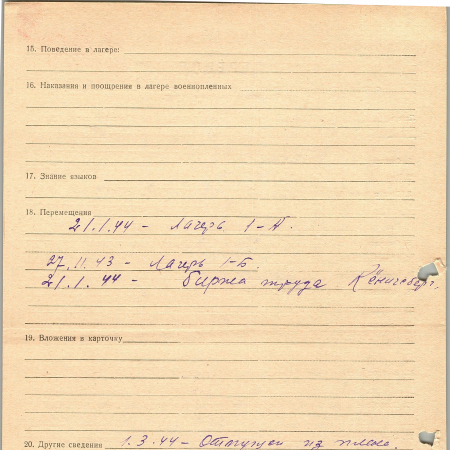 15. Поведение в лагере:
16. Наказания и поощрения в лагере военнопленных
17. Знание языков
18. Перемещения
21.1.44 - лагерь 1-А.
27.11.43 - лагерь 1-Б.
21.1.44 - биржа труда Кёнигсберг.
19. Вложения в карточку
20. Другие сведения 1.3.44 - Отпущен из плена.